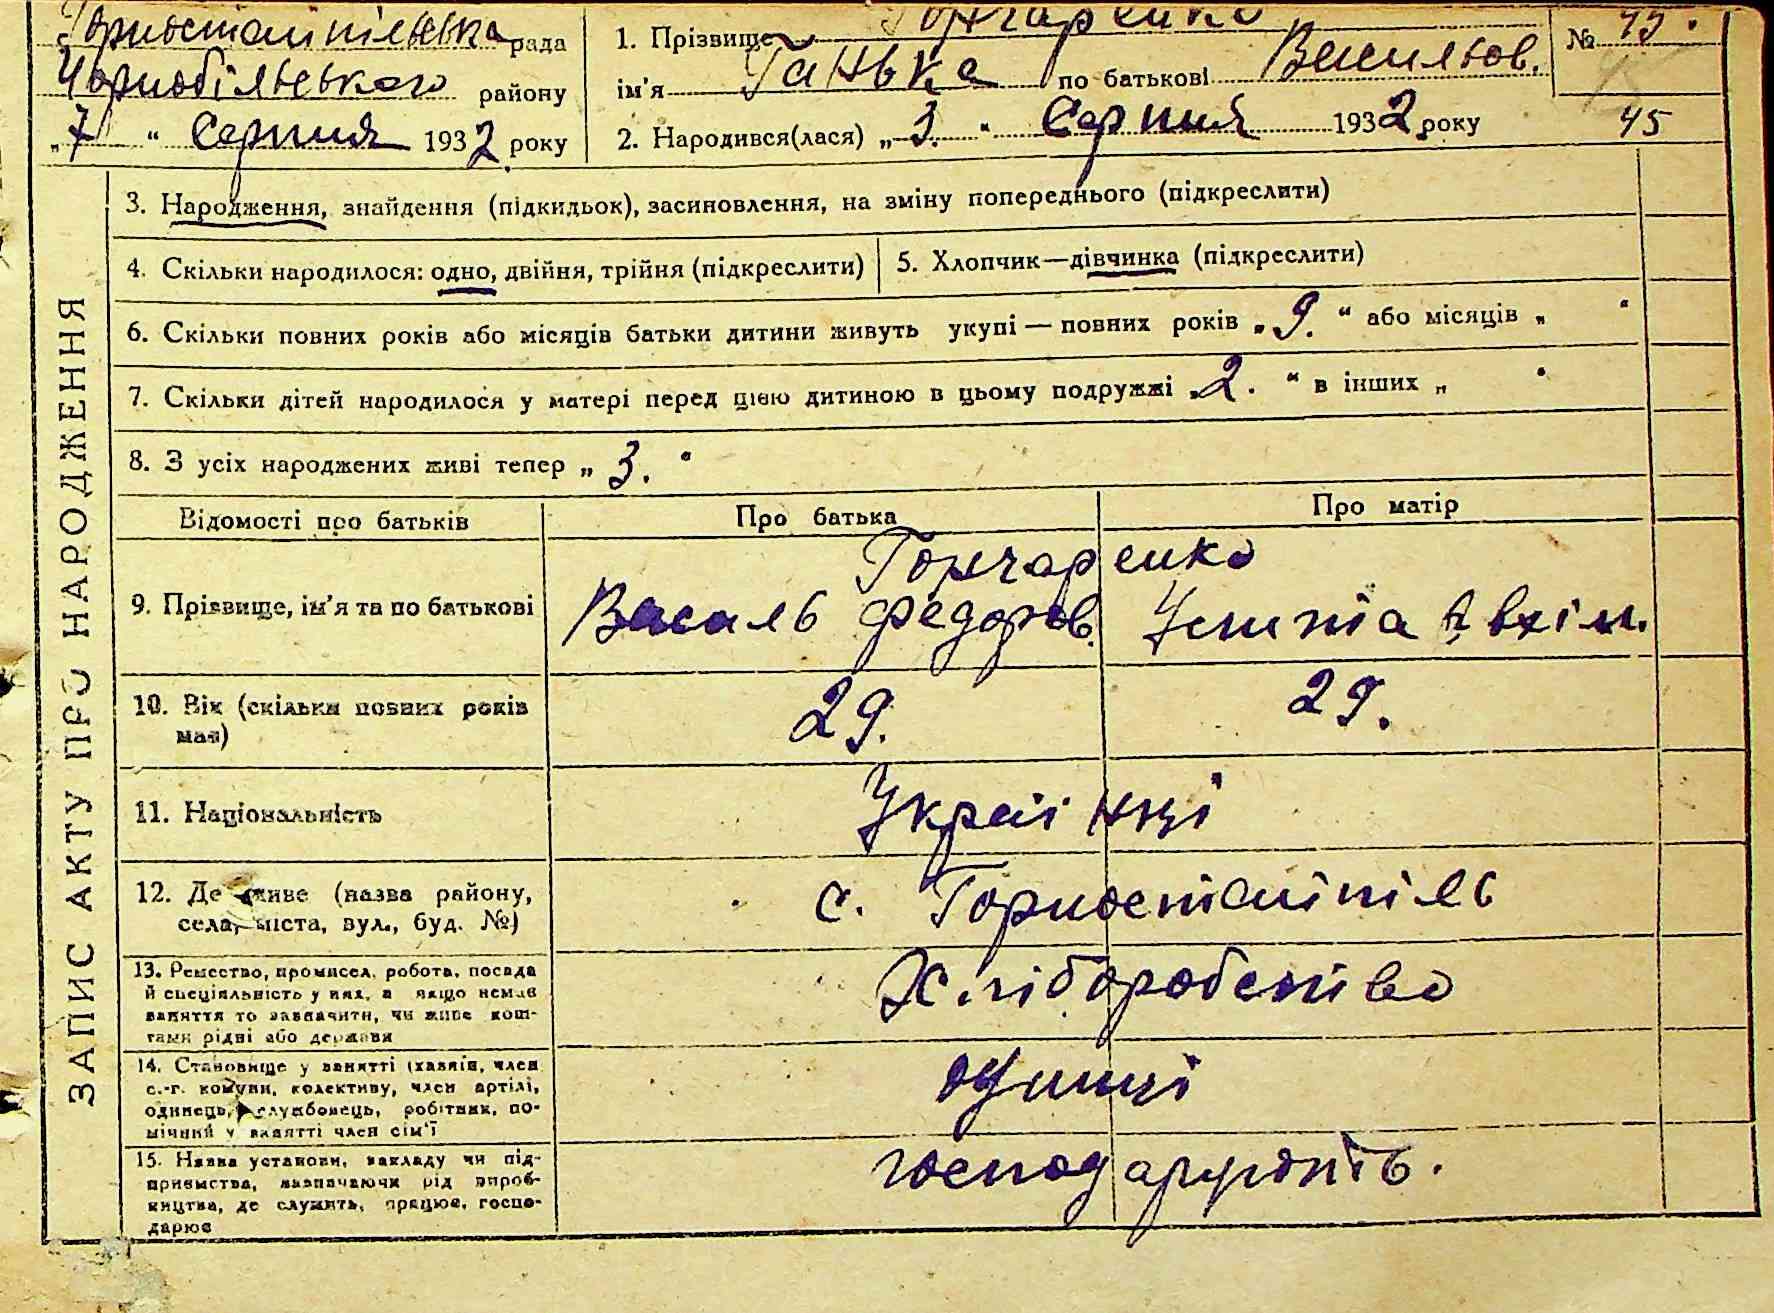 Горностайпільська рада
Чорнобільського району
„7“ Серпня 1932 року
1. Прізвище Гончаренко
ім'я Ганька по батькові Васильов.
2. Народився(лася) „3.“ Серпня 1932 року
№ 45.
45
ЗАПИС АКТУ ПРО НАРОДЖЕННЯ
3. Народження, знайдення (підкидьок), засиновлення, на зміну попереднього (підкреслити)
4. Скільки народилося: одно, двійня, трійня (підкреслити)
5. Хлопчик—дівчинка (підкреслити)
6. Скільки повних років або місяців батьки дитини живуть укупі — повних років „9.“ або місяців „ “
7. Скільки дітей народилося у матері перед цією дитиною в цьому подружжі „2.“ в інших „ “
8. З усіх народжених живі тепер „3.“
Відомості про батьків Про батька Про матір
9. Прізвище, ім'я та по батькові
Гончаренко
Василь Федоров. Устіта Авхім.
10. Вік (скільки повних років
має)
29. 29.
11. Національність
Українці
12. Де живе (назва району,
села, міста, вул., буд. №)
с. Горностайпіль
13. Ремество, промисел, робота, посада
й спеціяльність у них, а якщо немає
заняття то зазначити, чи живе кош-
тами рідні або держави
Хліборобство
14. Становище у занятті (хазяїн, член
с.-г. комуни, колективу, член артілі,
одинець, службовець, робітник, по-
мічний у занятті член сім'ї
15. Назва установи, закладу чи під-
приємства, зазначаючи рід вироб-
ництва, де служить, працює, госпо-
дарює
господарують.